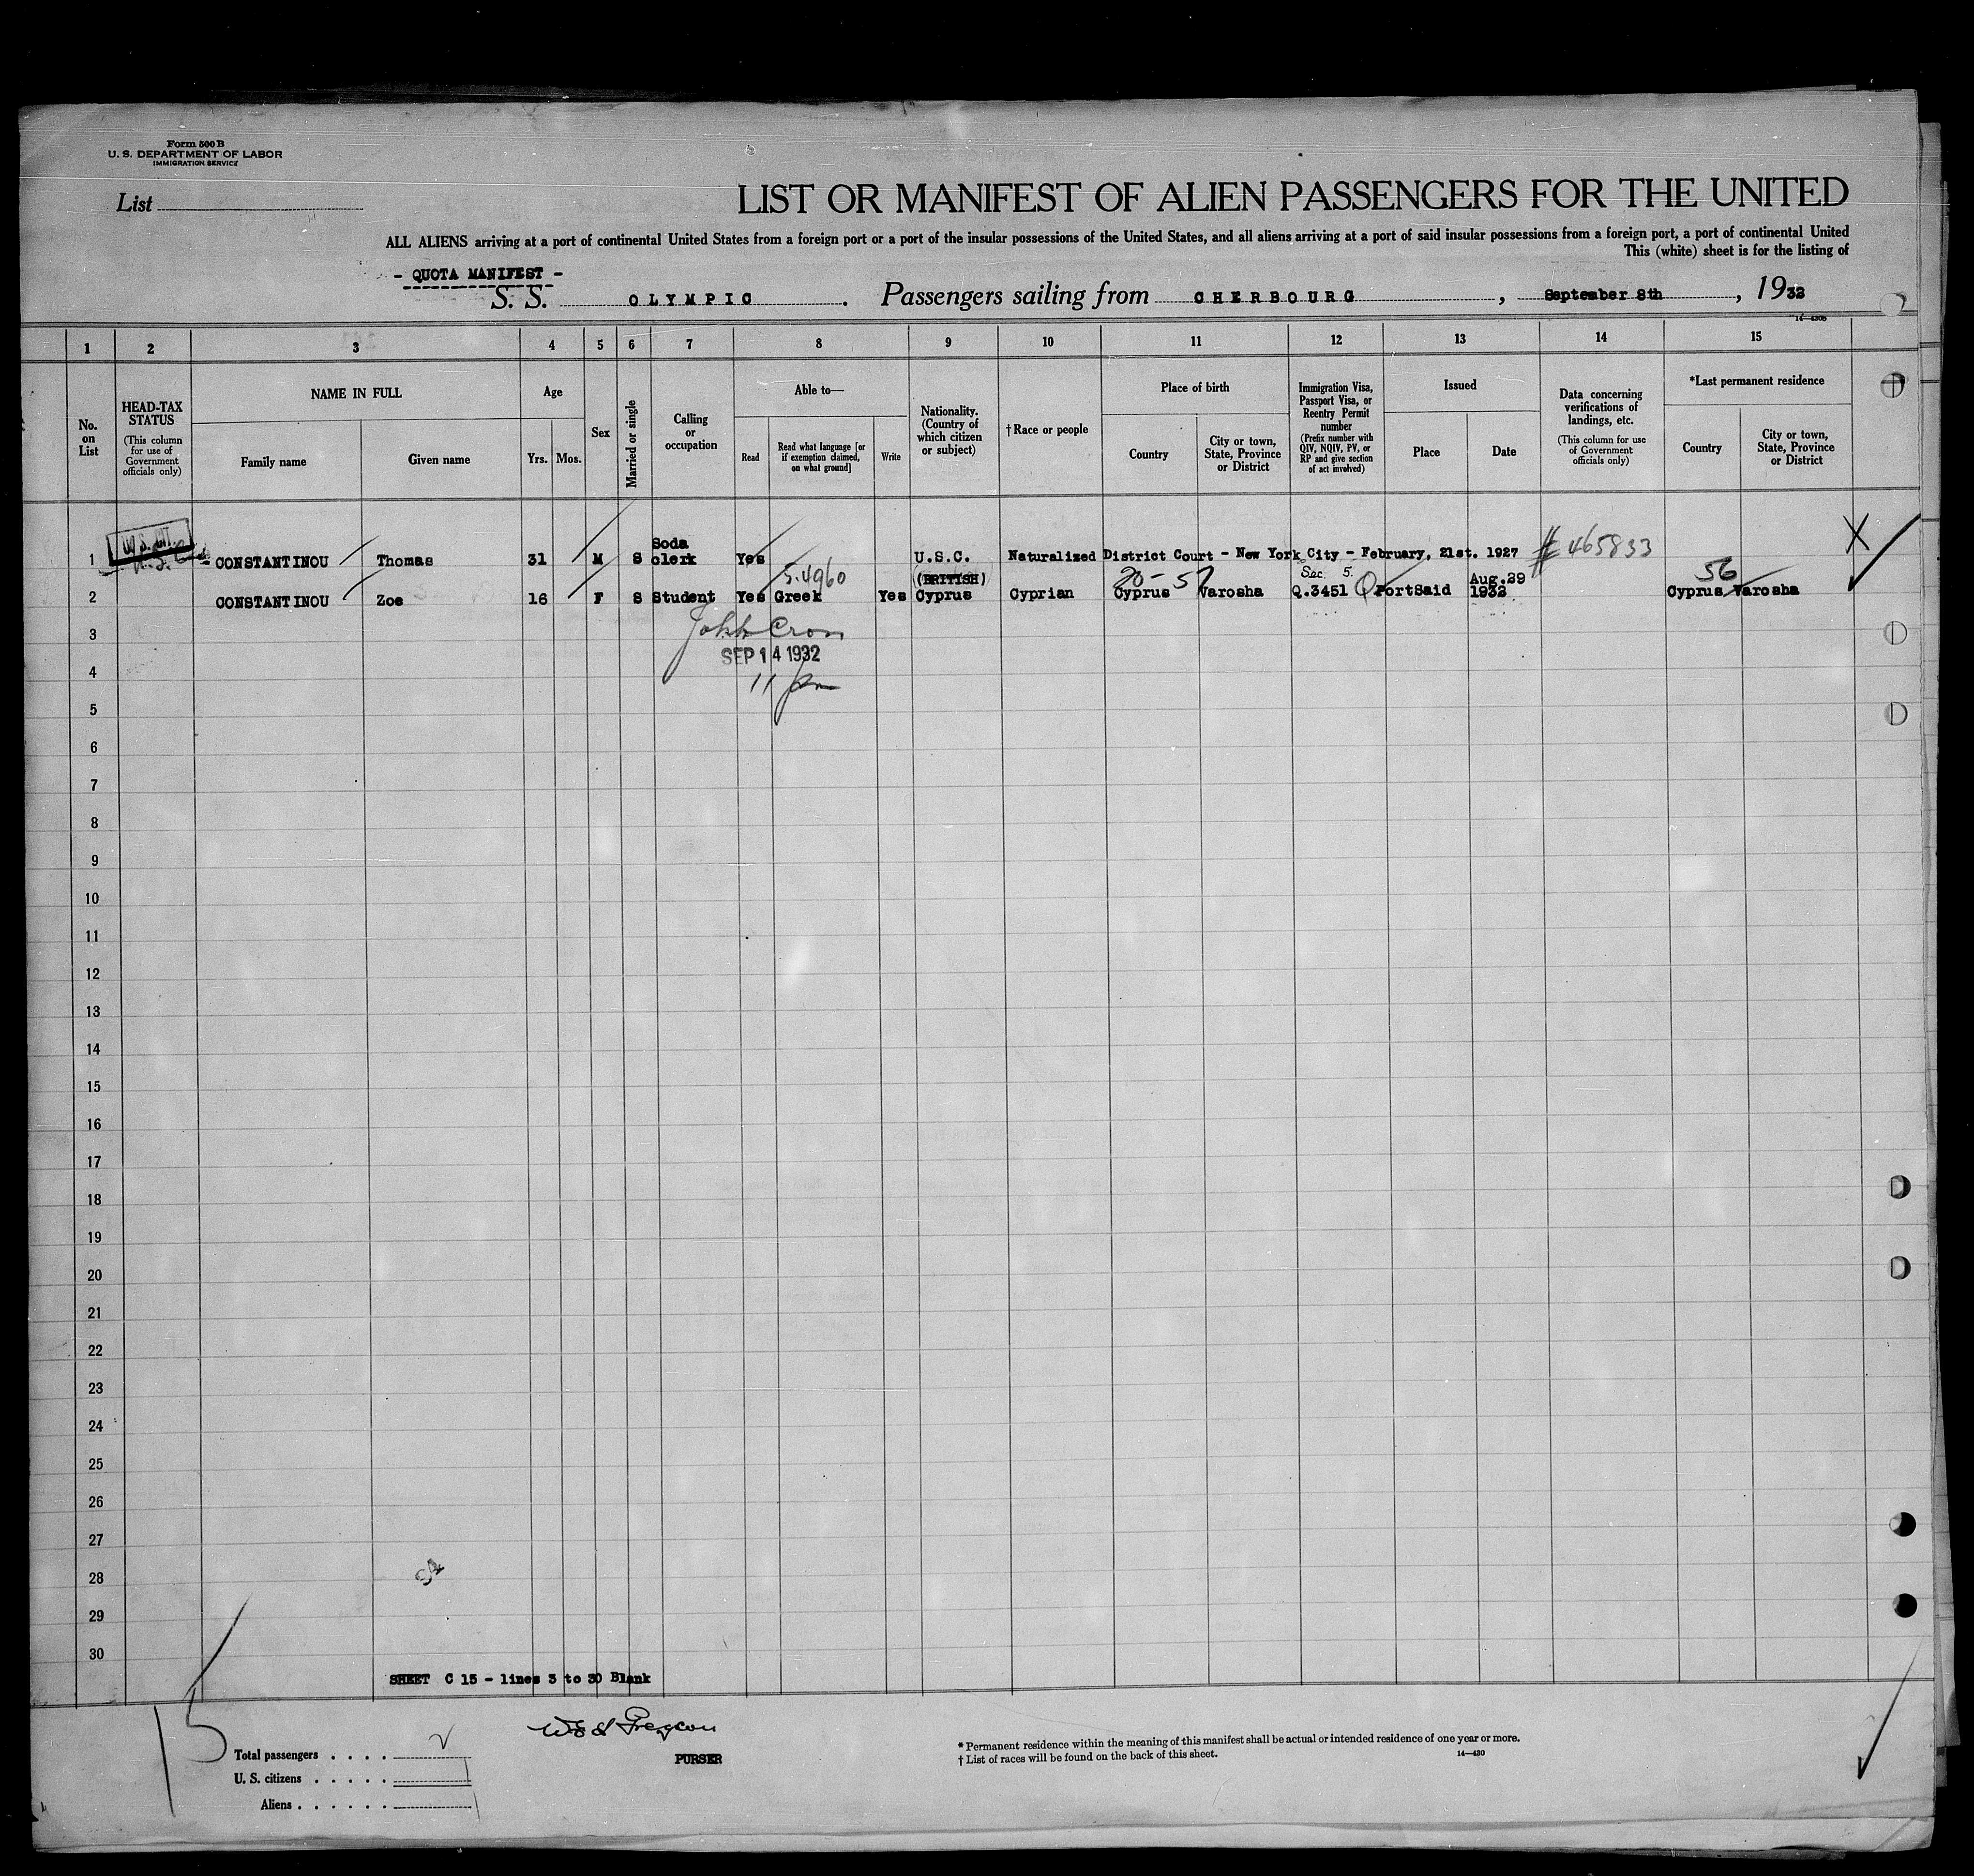 Form 500 B
U. S. DEPARTMENT OF LABOR
IMMIGRATION SERVICE
List
LIST OR MANIFEST OF ALIEN PASSENGERS FOR THE UNITED
ALL ALIENS arriving at a port of continental United States from a foreign port or a port of the insular possessions of the United States, and all aliens arriving at a port of said insular possessions from a foreign port, a port of continental United
This (white) sheet is for the listing of
- QUOTA MANIFEST -
S. S. OLYMPIC. Passengers sailing from CHERBOURG, September 8th, 1932
1 2 3 4 5 6 7 8 9 10 11 12 13 14 15
No. on List
HEAD-TAX STATUS
(This column for use of Government officials only)
NAME IN FULL
Family name Given name
Age
Yrs. Mos.
Sex
Married or single
Calling or occupation
Able to—
Read
Read what language [or if exemption claimed, on what ground]
Write
Nationality. (Country of which citizen or subject)
†Race or people
Place of birth
Country
City or town, State, Province or District
Immigration Visa, Passport Visa, or Reentry Permit number
(Prefix number with QIV, NQIV, PV, or RP and give section of act involved)
Issued
Place Date
Data concerning verifications of landings, etc.
(This column for use of Government officials only)
*Last permanent residence
Country
City or town, State, Province or District
1 CONSTANTINOU Thomas 31 M S Soda clerk Yes U.S.C. Naturalized District Court - New York City - February, 21st. 1927 # 465833
5.4960 (BRITISH) Sec. 5. 56
2 CONSTANTINOU Zoe 16 F S Student Yes Greek Yes Cyprus Cyprian Cyprus Varosha Q.3451 Q PortSaid Aug.29 1932 Cyprus Varosha
3
SEP 14 1932
4
5
6
7
8
9
10
11
12
13
14
15
16
17
18
19
20
21
22
23
24
25
26
27
28
29
30
SHEET C 15 - lines 3 to 30 Blank
15
PURSER
Total passengers
U. S. citizens
Aliens
* Permanent residence within the meaning of this manifest shall be actual or intended residence of one year or more.
† List of races will be found on the back of this sheet.
14—430